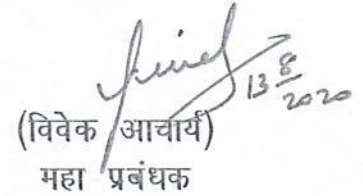 13/8/2020
(विवेक आचार्य)
महा प्रबंधक